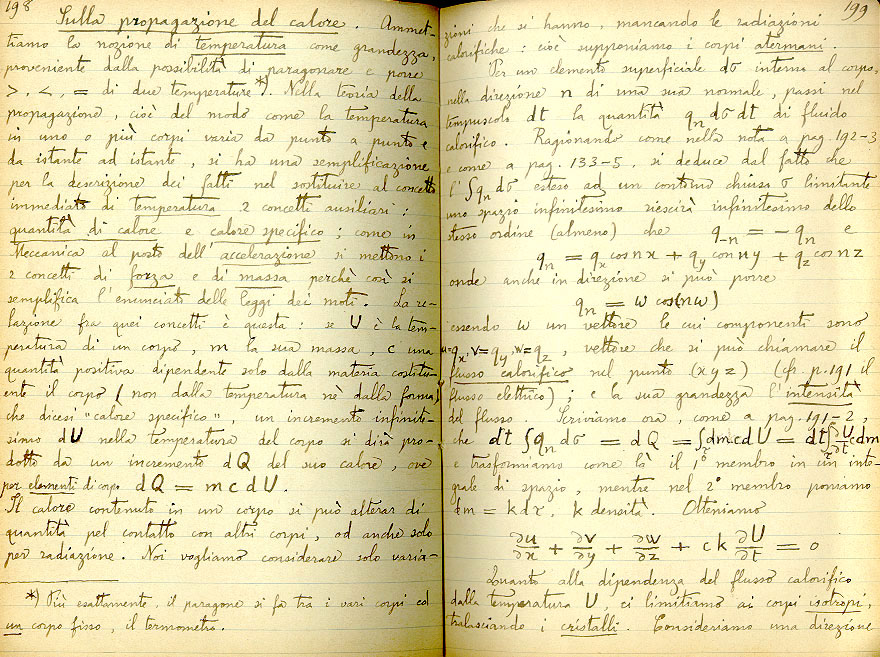 198
Sulla propagazione del calore. Ammet-
tiamo la nozione di temperatura come grandezza,
proveniente dalla possibilità di paragonare e porre
>, <, = di due temperature*). Nella teoria della
propagazione, cioè del modo come la temperatura
in uno o più corpi varia da punto a punto e
da istante ad istante, si ha una semplificazione
per la descrizione dei fatti nel sostituire al concetto
immediato di temperatura 2 concetti ausiliari:
quantità di calore e calore specifico; come in
Meccanica al posto dell'accelerazione si mettono i
2 concetti di forza e di massa perchè così si
semplifica l'enunciato delle leggi dei moti. La re-
lazione fra quei concetti è questa: se U è la tem-
peratura di un corpo, m la sua massa, c una
quantità positiva dipendente solo dalla materia costitu-
ente il corpo (non dalla temperatura nè dalla forma)
che dicesi "calore specifico", un incremento infinite-
simo dU nella temperatura del corpo si dirà pro-
dotto da un incremento dQ del suo calore, ove
per elementi di corpo dQ = m c dU.
Il calore contenuto in un corpo si può alterar di
quantità pel contatto con altri corpi, od anche solo
per radiazione. Noi vogliamo considerare solo varia-
*) Più esattamente, il paragone si fa tra i vari corpi ed
un corpo fisso, il termometro.
199
zioni che si hanno, mancando le radiazioni
calorifiche: cioè supponiamo i corpi atermani.
Per un elemento superficiale dσ interno al corpo,
nella direzione n di una sua normale, passi nel
tempuscolo dt la quantità qₙ dσ dt di fluido
calorifico. Ragionando come nella nota a pag. 192-3
e come a pag. 133-5, si deduce dal fatto che
l'∫qₙ dσ esteso ad un contorno chiuso σ limitante
uno spazio infinitesimo riescirà infinitesimo dello
stesso ordine (almeno) che q₋ₙ = - qₙ e
qₙ = qₓ cos nx + q_y cos ny + q_z cos nz
onde anche in direzione si può porre
qₙ = w cos(nw)
essendo w un vettore le cui componenti sono
u=qₓ, v=q_y, w=q_z, vettore che si può chiamare il
flusso calorifico nel punto (x y z) (cfr. p. 191 il
flusso elettrico); e la sua grandezza l'intensità
del flusso. Scriviamo ora, come a pag. 191-2,
che dt ∫qₙ dσ = dQ = ∫dm.c dU = dt∫∂U/∂t c dm
e trasformiamo come là il 1° membro in un inte-
grale di spazio, mentre nel 2° membro poniamo
dm = k dτ, k densità. Otteniamo
∂u/∂x + ∂v/∂y + ∂w/∂z + c k ∂U/∂t = 0
Quanto alla dipendenza del flusso calorifico
dalla temperatura U, ci limitiamo ai corpi isotropi,
tralasciando i cristalli. Consideriamo una direzione